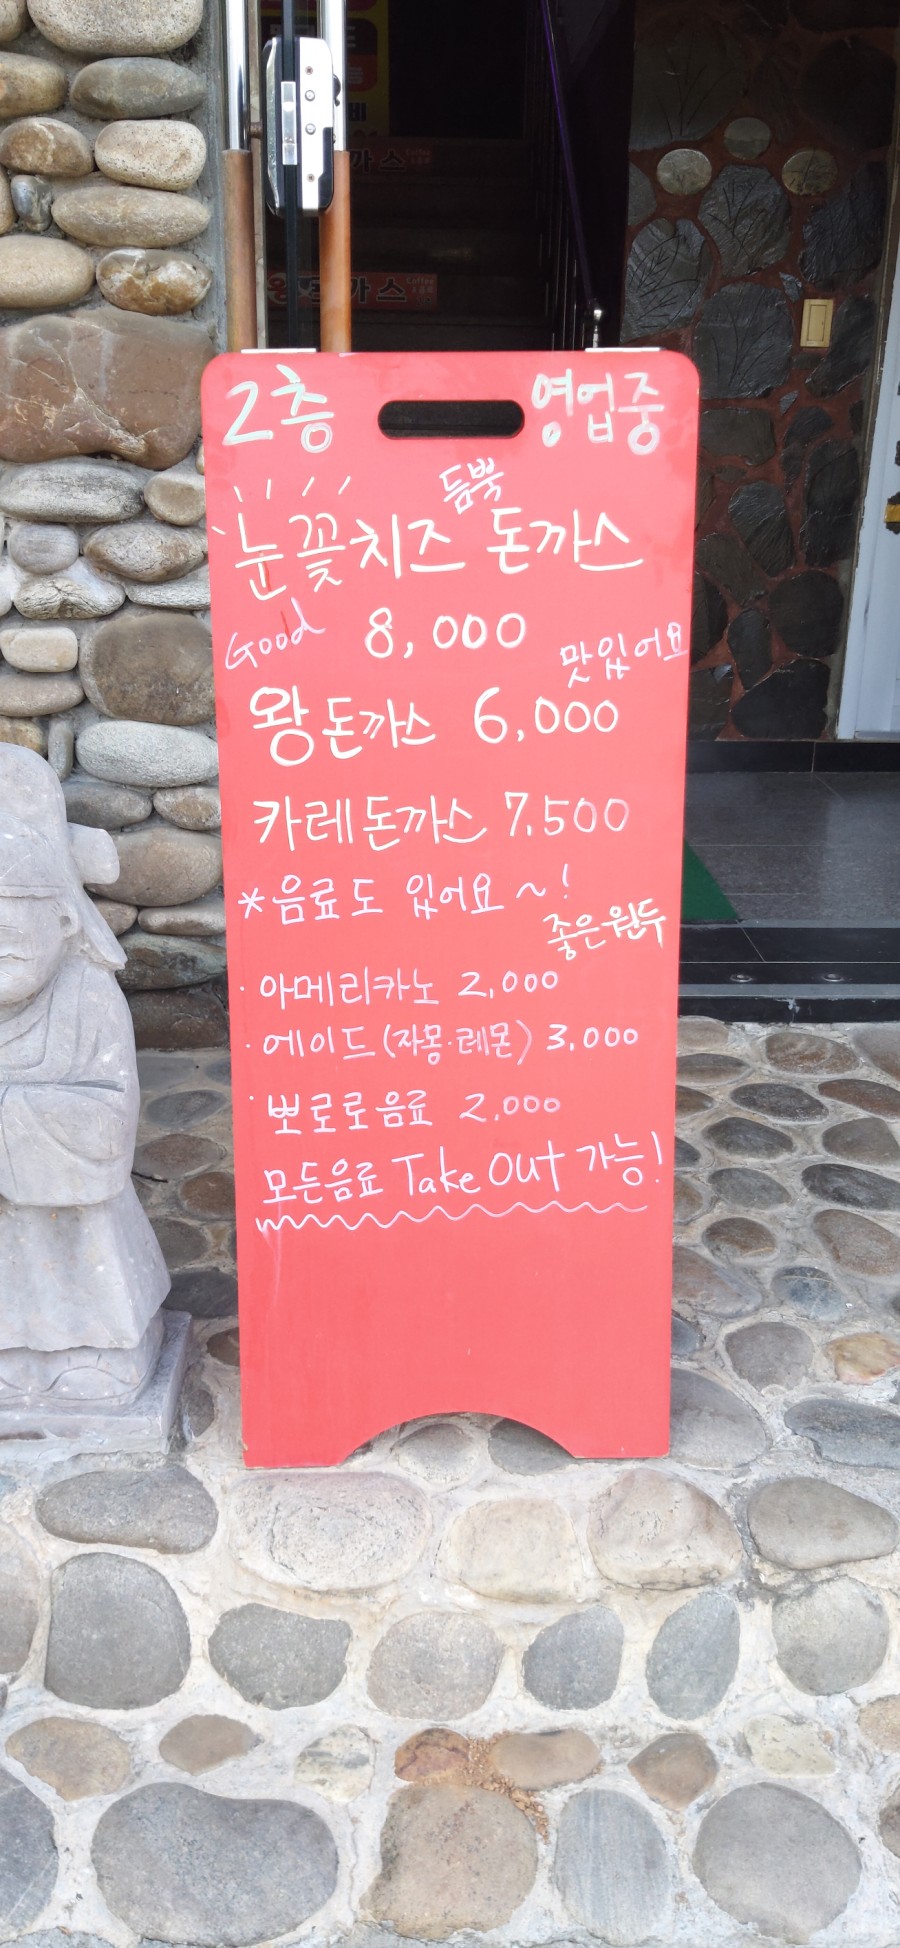 까스 Coffee
왕돈까스 Coffee
2층 영업중
듬뿍
눈꽃치즈 돈까스
Good 8,000
맛있어요
왕돈까스 6,000
카레돈까스 7.500
*음료도 있어요~!
좋은원두
· 아메리카노 2,000
· 에이드(자몽·레몬) 3.000
· 뽀로로음료 2.000
모든음료 Take Out 가능!